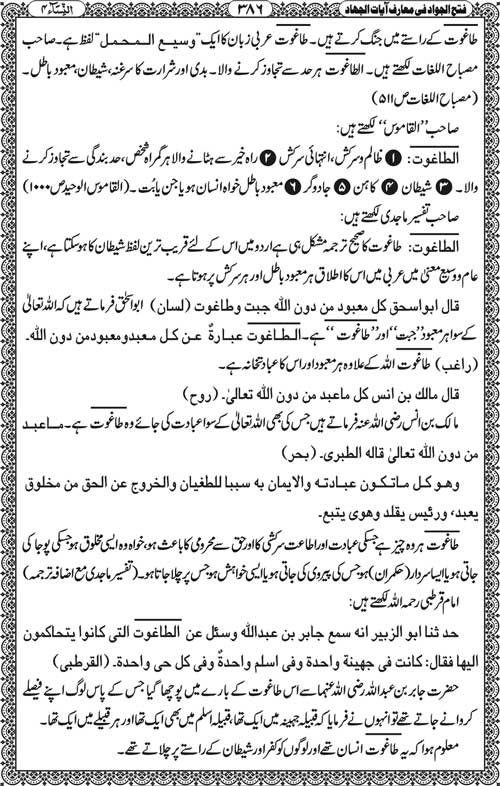 فتح الجواد فی معارف آیات الجهاد ۳۸۶ النساء ۴
طاغوت کے راستے میں جنگ کرتے ہیں۔ طاغوت عربی زبان کا ایک "وسیع المحمل" لفظ ہے۔ صاحب
مصباح اللغات لکھتے ہیں۔ الطاغوت ہر حد سے تجاوز کرنے والا۔ بدی اور شرارت کا سرغنہ، شیطان، معبود باطل۔
(مصباح اللغات ص ۵۱۱)
صاحب "القاموس" لکھتے ہیں:
الطاغوت: ❶ ظالم و سرکش، انتہائی سرکش ❷ راہ خیر سے ہٹانے والا ہر گمراہ شخص، حد بندگی سے تجاوز کرنے
والا۔ ❸ شیطان ❹ کاہن ❺ جادوگر ❻ معبود باطل خواہ انسان ہو یا جن یا بُت۔ (القاموس الوحید ص ۱۰۰۰)
صاحب تفسیر ماجدی لکھتے ہیں:
الطاغوت: طاغوت کا صحیح ترجمہ مشکل ہی ہے اردو میں اس کے لئے قریب ترین لفظ شیطان کا ہو سکتا ہے، اپنے
عام و وسیع معنیٰ میں عربی میں اس کا اطلاق ہر معبود باطل اور ہر سرکش پر ہوتا ہے۔
قال ابو اسحق کل معبود من دون الله جبت وطاغوت (لسان) ابو اسحٰق فرماتے ہیں کہ اللہ تعالیٰ
کے سوا ہر معبود "جبت" اور "طاغوت" ہے۔ الطاغوت عبارةٌ عن کل معبدومعبودمن دون الله۔
(راغب) طاغوت اللہ کے علاوہ ہر معبود اور اس کا عبادتخانہ ہے۔
قال مالك بن انس کل ماعبد من دون الله تعالیٰ۔ (روح)
مالک بن انس رضی اللہ عنہ فرماتے ہیں جس کی بھی اللہ تعالیٰ کے سوا عبادت کی جائے وہ طاغوت ہے۔ ماعبد
من دون الله تعالیٰ قاله الطبری۔ (بحر)
وهو کل ماتکون عبادته والایمان به سببا للطغیان والخروج عن الحق من مخلوق
یعبد، ورئیس یقلد وهوی یتبع۔
طاغوت ہر وہ چیز ہے جسکی عبادت اور اطاعت سرکشی کا اور حق سے محرومی کا باعث ہو، خواہ وہ ایسی مخلوق ہو جسکی پوجا کی
جاتی ہو یا ایسا سردار (حکمران) ہو جس کی پیروی کی جاتی ہو یا ایسی خواہش ہو جس پر چلا جاتا ہو۔ (تفسیر ماجدی مع اضافہ ترجمہ)
امام قرطبی رحمہ اللہ لکھتے ہیں:
حد ثنا ابو الزبیر انه سمع جابر بن عبدالله وسئل عن الطاغوت التی کانوا یتحاکمون
الیها فقال: کانت فی جهینة واحدة وفی اسلم واحدةٌ وفی کل حی واحدة۔ (القرطبی)
حضرت جابر بن عبداللہ رضی اللہ عنہما سے اس طاغوت کے بارے میں پوچھا گیا جس کے پاس لوگ اپنے فیصلے
کروانے جاتے تھے تو انہوں نے فرمایا کہ قبیلہ جہینہ میں ایک تھا، قبیلہ اسلم میں بھی ایک تھا اور ہر قبیلے میں ایک تھا۔
معلوم ہوا کہ یہ طاغوت انسان تھے اور لوگوں کو کفر اور شیطان کے راستے پر چلاتے تھے۔